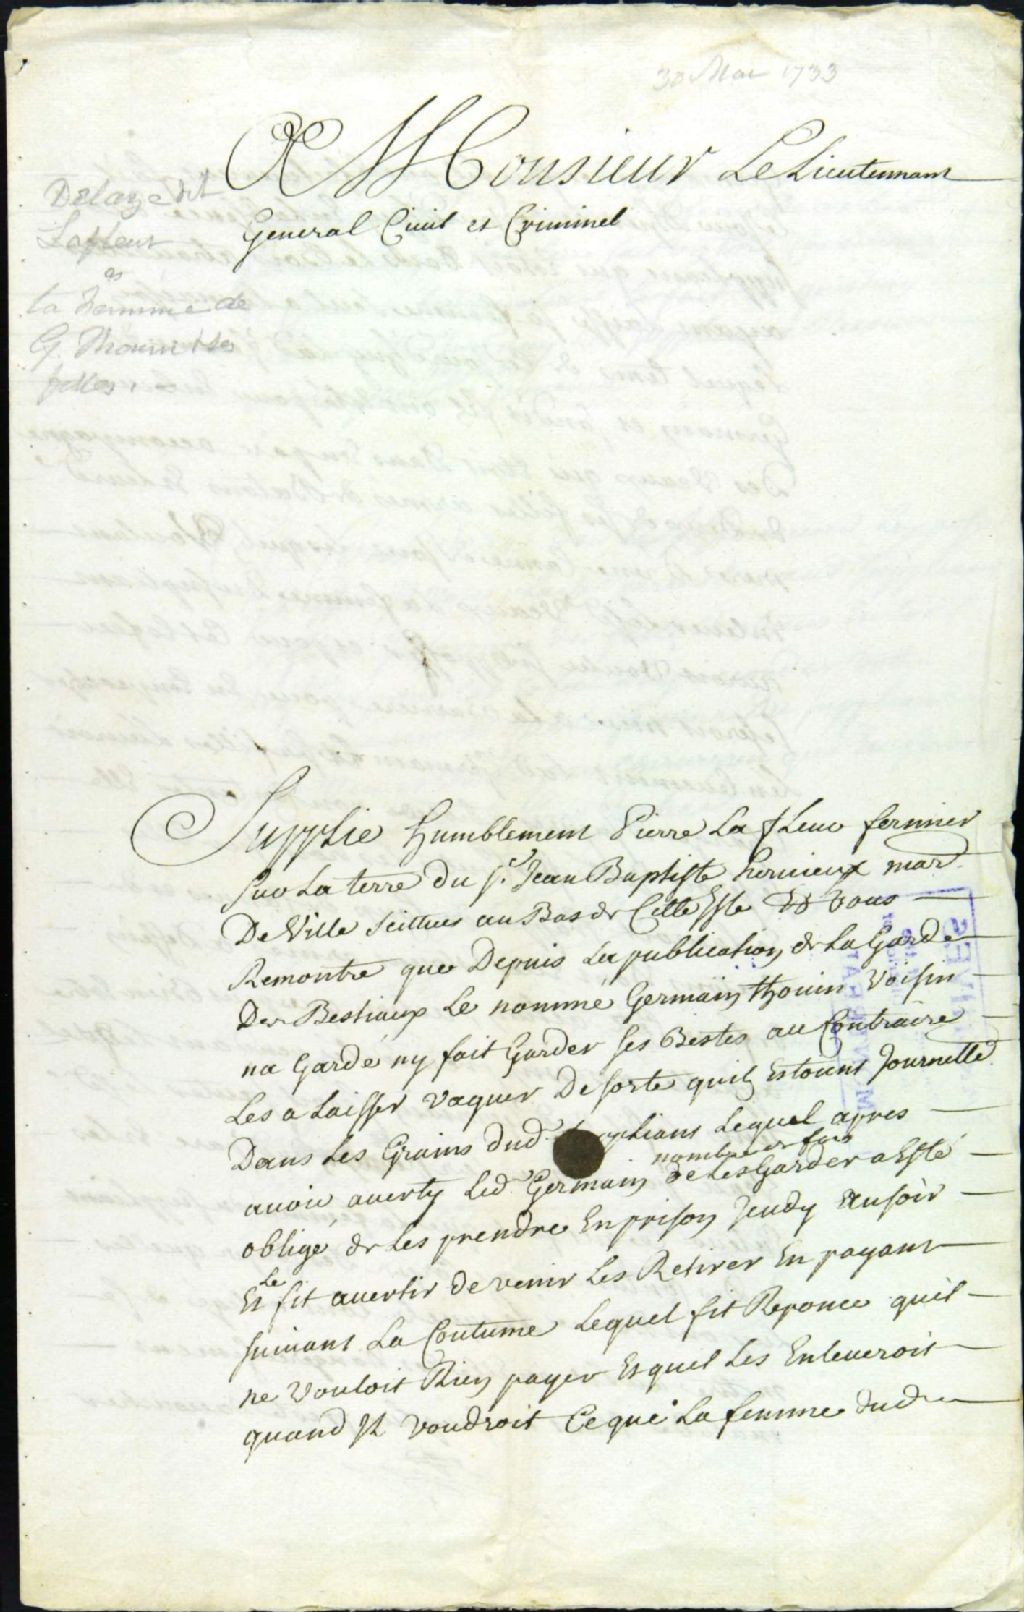 30 Mai 1733
Delaze dit
Lafleur
as
la Femme de
G. Thouin & les
filles.
A Monsieur Le Lieutennant
General Ciuil et Criminel
Supplie humblement Pierre La fleur fermier
sur La terre du Sr. Jean Baptiste heruieux mard
De Ville scittuée au Bas de Cette Isle Et vous
Remontre que Depuis La publication de La Garde
Des Bestiaux Le nommé Germain Thouin Voisin
na Gardé ny fait Garder ses Bestes au Contraire
Les a Laisser vaquer De sorte quils Estoient Journelle
Dans Les Grains dud. suppliant Lequel apres
nombre de fois
auoir auerty Led Germain de Les Garder a Esté
obligé de Les prendre En prison Jeudy au soir
Le
Et fit auertir de venir Les Retirer En payant
suiuant La Coutume Lequel fit Reponce quil
ne vouloit Rien payer Et quil Les Enleueroit
quand Il voudroit Ce que La femme dud